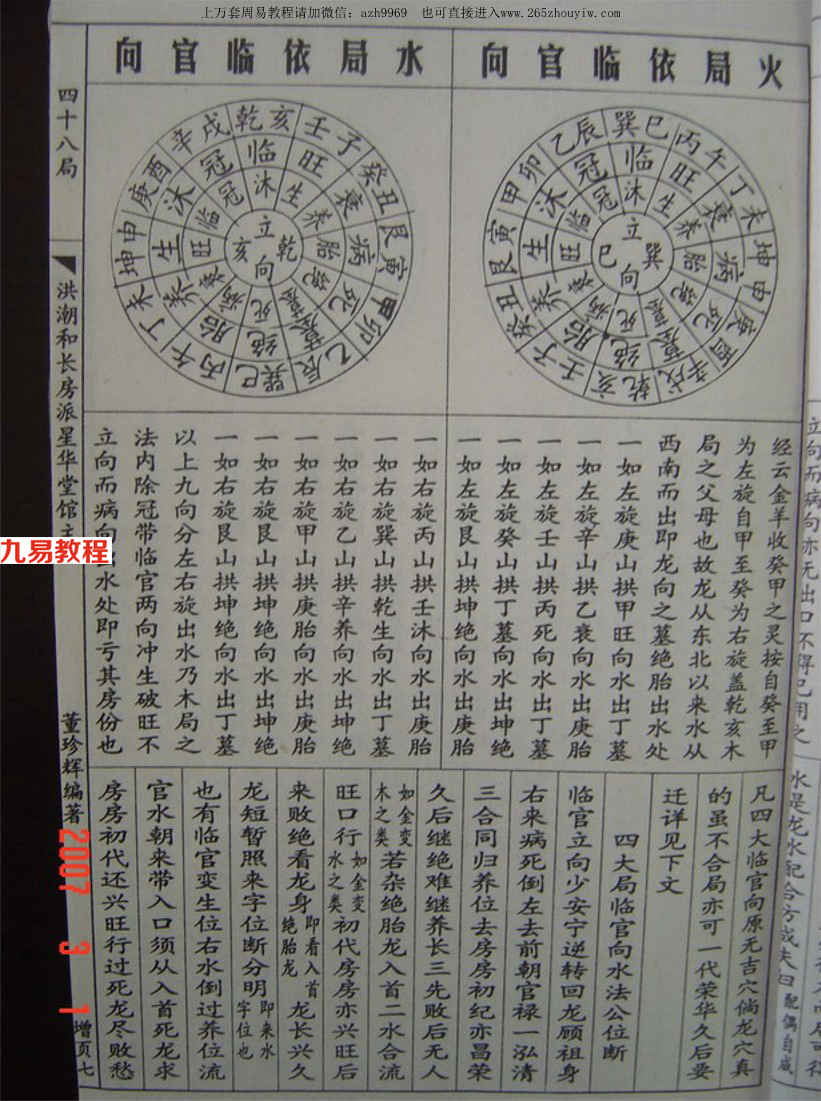 上万套周易教程请加微信：azh9969　也可直接进入www.265zhouyiw.com
火局依临官向
水局依临官向
立巽向巳
沐生养胎绝墓死病衰旺临冠
临旺衰病死墓绝胎养生沐冠
巽巳丙午丁未坤申庚酉辛戌乾亥壬子癸丑艮寅甲卯乙辰
立乾向亥
沐生养胎绝墓死病衰旺临冠
临旺衰病死墓绝胎养生沐冠
乾亥壬子癸丑艮寅甲卯乙辰巽巳丙午丁未坤申庚酉辛戌
经云金羊收癸甲之灵按自癸至甲
为左旋自甲至癸为右旋盖乾亥木
局之父母也故龙从东北以来水从
西南而出即龙向之墓绝胎出水处
一如左旋庚山拱甲旺向水出丁墓
一如左旋辛山拱乙衰向水出庚胎
一如左旋壬山拱丙死向水出丁墓
一如左旋癸山拱丁墓向水出坤绝
一如左旋艮山拱坤绝向水出庚胎
一如右旋丙山拱壬沐向水出庚胎
一如右旋巽山拱乾生向水出丁墓
一如右旋乙山拱辛养向水出坤绝
一如右旋甲山拱庚胎向水出庚胎
一如右旋艮山拱坤绝向水出坤绝
一如右旋艮山拱坤绝向水出丁墓
以上九向分左右旋出水乃木局之
法内除冠带临官两向冲生破旺不
立向而病向水处即亏其房份也
凡四大临官向原无吉穴倘龙穴真
的虽不合局亦可一代荣华久后要
迁详见下文
四大局临官向水法公位断
临官立向少安宁逆转回龙顾祖身
右来病死倒左去前朝官禄一泓清
三合同归养位去房房初纪亦昌荣
久后继绝难继养长三先败后无人
如金变木之类若杂绝胎龙入首二水合流
旺口行如金变水之类初代房房亦兴旺后
来败绝看龙身即看入首绝胎龙龙长兴久
龙短暂照来字位断分明即来水字位也
也有临官变生位右水倒过养位流
官水朝来带入口须从入首死龙求
房房初代还兴旺行过死龙尽败愁
四十八局
洪潮和长房派星华堂馆
九易教程
董珍辉编著
增页七
2007 3 1
立向而病向亦无出口不得已用之
水是龙水配合方成夫曰配偶自成